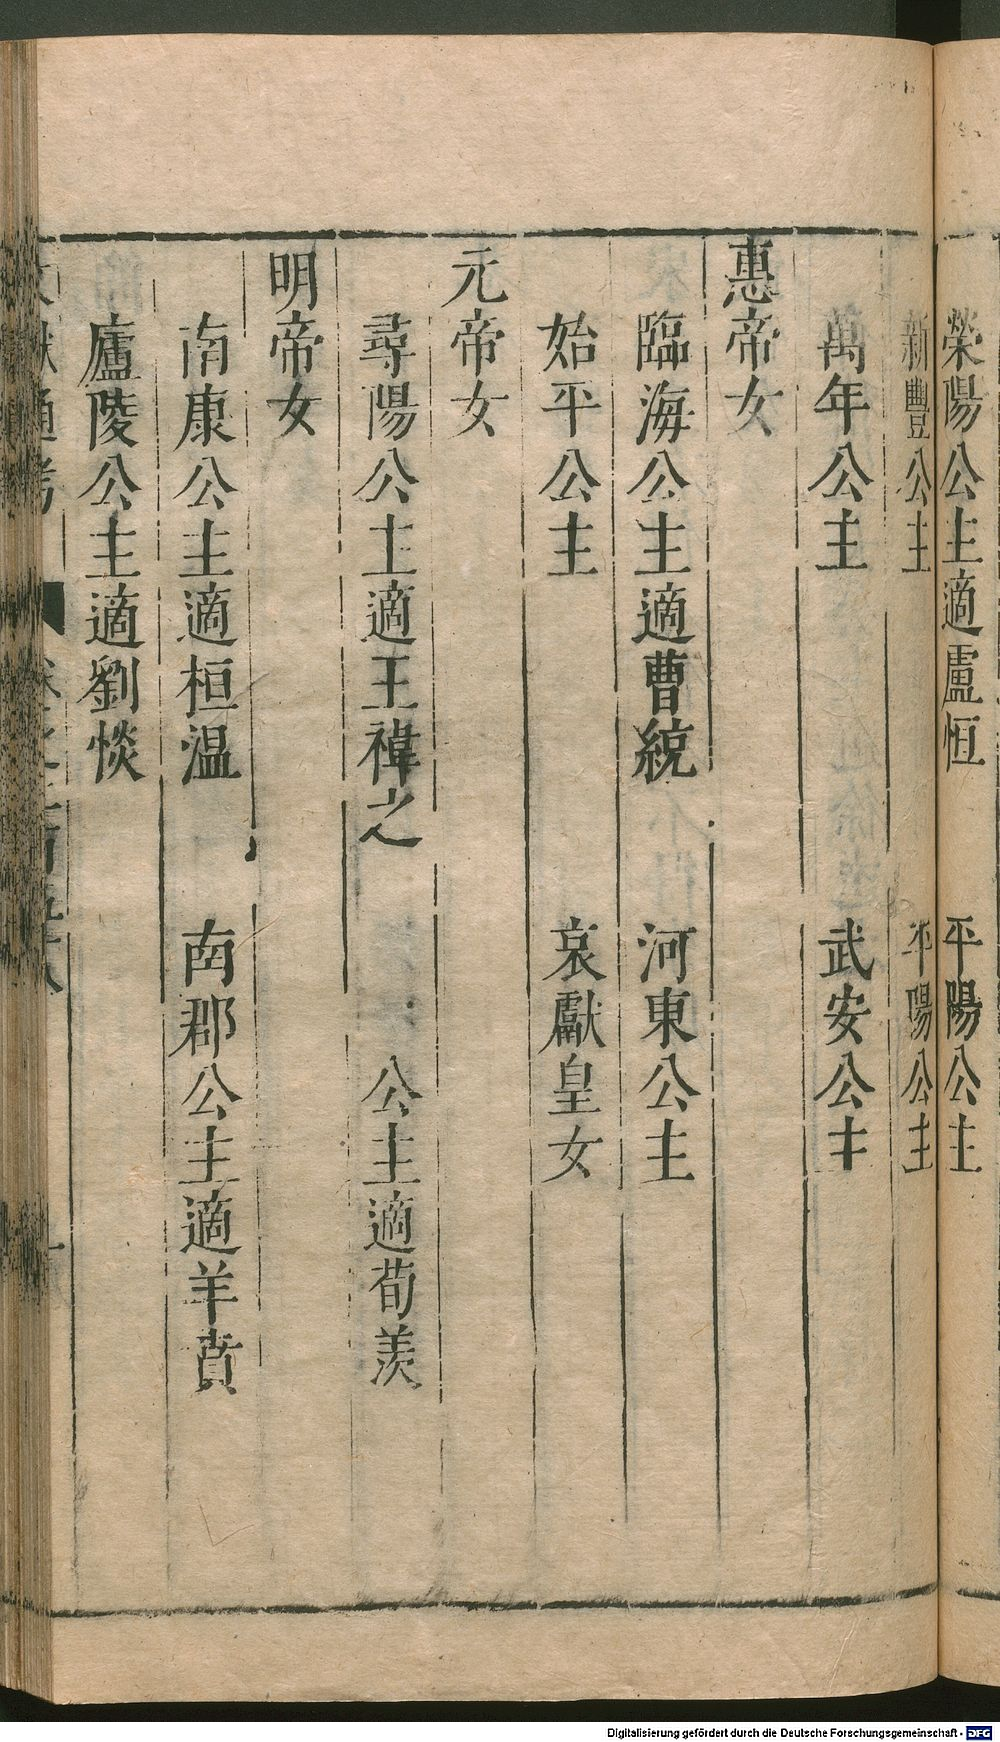 滎陽公主適盧恒　平陽公主
新豐公主　平陽公主
萬年公主　武安公主
惠帝女
臨海公主適曹統　河東公主
始平公主　哀獻皇女
元帝女
尋陽公主適王褘之　公主適荀羨
明帝女
南康公主適桓温　南郡公主適羊賁
廬陵公主適劉惔
文獻通考　卷之二百五十八
Digitalisierung gefördert durch die Deutsche Forschungsgemeinschaft - DFG